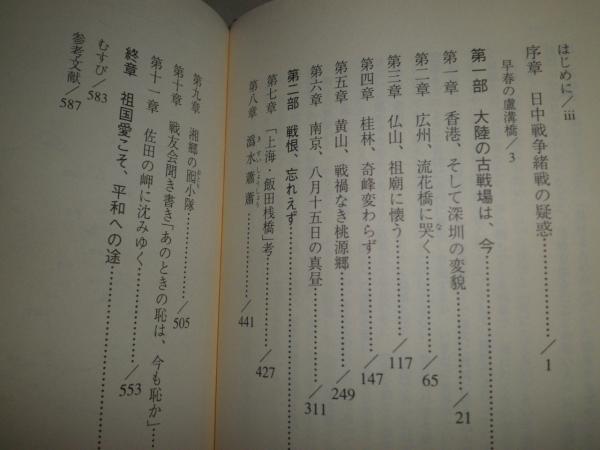 はじめに/iii
序章　日中戦争緒戦の疑惑…………/1
早春の盧溝橋/3
第一部　大陸の古戦場は、今…………
第一章　香港、そして深圳の変貌…………/21
第二章　広州、流花橋に哭く…………/65
な
第三章　仏山、祖廟に懐う…………/117
第四章　桂林、奇峰変わらず…………/147
第五章　黄山、戦禍なき桃源郷…………/249
第六章　南京、八月十五日の真昼…………/311
第二部　戦恨、忘れえず…………
第七章　「上海・飯田桟橋」考…………/427
第八章　滔水蕭蕭…………/441
第九章　湘郷の囮小隊…………/505
おとり
第十章　戦友会聞き書き「あのときの恥は、今も恥か」…
第十一章　佐田の岬に沈みゆく…………/553
終章　祖国愛こそ、平和への途…………
むすび/583
参考文献/587